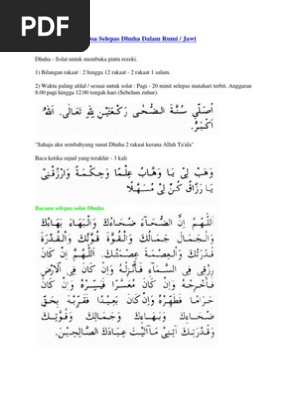 PDF
osa Selepas Dhuha Dalam Rumi / Jawi
Dhuha - Solat untuk membuka pintu rezeki.
1) Bilangan rakaat : 2 hingga 12 rakaat - 2 rakaat 1 salam.
2) Waktu paling afdal / sesuai untuk solat : Pagi - 20 minit selepas matahari terbit. Anggaran
8:00 pagi hingga 12:00 tengah hari (Sebelum zuhur).
اُصَلِّى سُنَّةَ الضُّحٰى رَكْعَتَيْنِ لِلّٰهِ تَعَالٰى. اَللّٰهُ
اَكْبَرُ.
"Sahaja aku sembahyang sunat Dhuha 2 rakaat kerana Allah Ta'ala"
Baca ketika sujud yang terakhir - 3 kali
وَهَبْ لِيْ يَا وَهَّابُ عِلْمًا وَحِكْمَةً وَارْزُقْنِيْ
يَا رَزَّاقُ كُنْ لِيْ مُسَهِّلًا
Bacaan selepas solat Dhuha
اَللّٰهُمَّ اِنَّ الضُّحَآءَ ضُحَاءُكَ وَالْبَهَاءَ بَهَاءُكَ
وَالْجَمَالَ جَمَالُكَ وَالْقُوَّةَ قُوَّتُكَ وَالْقُدْرَةَ
قُدْرَتُكَ وَالْعِصْمَةَ عِصْمَتُكَ. اَللّٰهُمَّ اِنْ كَانَ
رِزْقِيْ فِى السَّمَآءِ فَأَنْزِلْهُ وَاِنْ كَانَ فِى الْاَرْضِ
فَأَخْرِجْهُ وَاِنْ كَانَ مُعَسَّرًا فَيَسِّرْهُ وَاِنْ كَانَ
حَرَامًا فَطَهِّرْهُ وَاِنْ كَانَ بَعِيْدًا فَقَرِّبْهُ بِحَقِّ
ضُحَاءِكَ وَبَهَاءِكَ وَجَمَالِكَ وَقُوَّتِكَ
وَقُدْرَتِكَ اٰتِنِيْ مَآ اٰتَيْتَ عِبَادَكَ الصَّالِحِيْنَ.